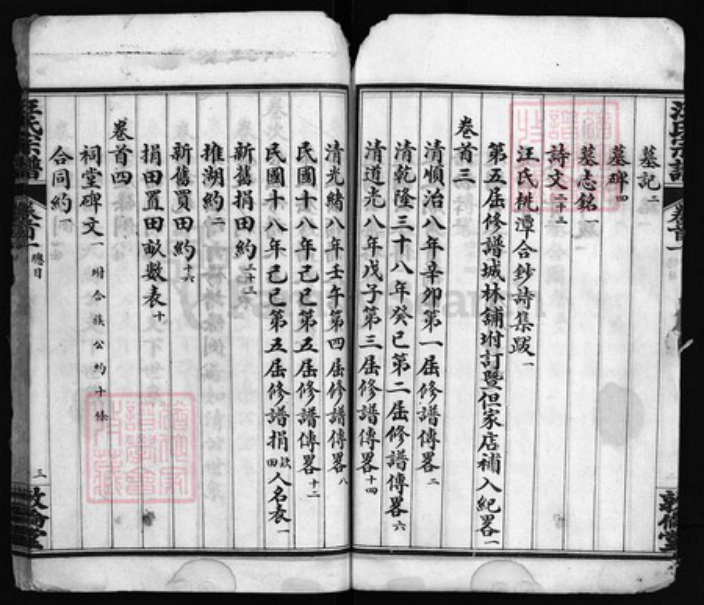 墓記二
墓碑四
墓志銘一
詩文二十三
汪氏桃潭合鈔詩集跋一
第五屆修譜城林舖坿訂暨但家店補入紀畧一
卷首三
清順治八年辛卯第一屆修譜傳畧二
清乾隆三十八年癸巳第二屆修譜傳畧六
清道光八年戊子第三屆修譜傳畧十四
清光緒八年壬午第四屆修譜傳畧八
民國十八年己巳第五屆修譜傳畧十二
民國十八年己巳第五屆修譜捐款田人名表一
新舊捐田約
推湖約二
新舊買田約十六
捐田置田畝數表十
卷首四
祠堂碑文一 附合族公約十條
合同約一
汪氏宗譜
卷首一
總目
三
敦倫堂